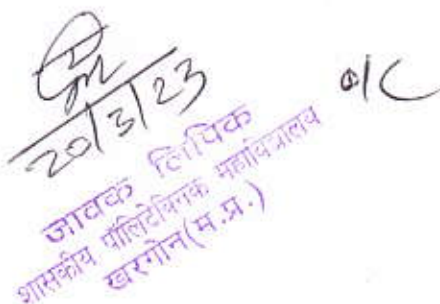 20/3/23
o/c
जावक लिपिक
शासकीय पॉलिटेक्निक महाविद्यालय
खरगोन (म.प्र.)